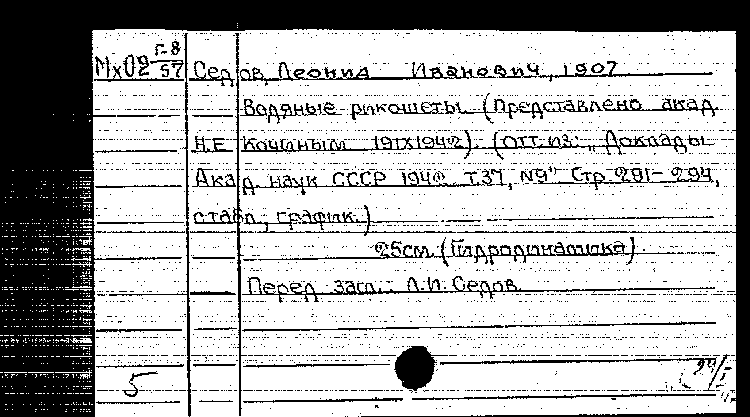 Мх02 Г-8/57 Седов, Леонид Иванович, 1907
Водяные рикошеты. (Представлено акад.
Н.Е. Кочиным 19IX1942). (Отт. из: „Доклады
Акад. наук СССР 1942 Т.37, №9" Стр. 291-294,
с табл., график.)
25см. (Гидродинамика).
Перед загл.: Л.И. Седов
5